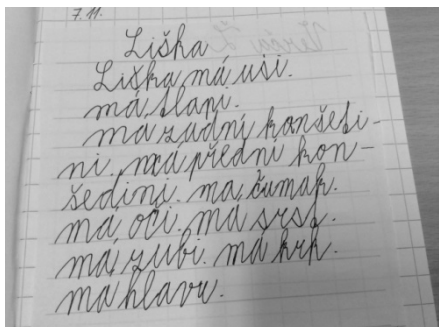 7. 11.
Liška
Liška má uši.
má tlapi.
má zadní konšeti-
ni. má přední kon-
šedini. ma čumak.
má oči. má srst.
má zubi. má krk.
má hlavu.